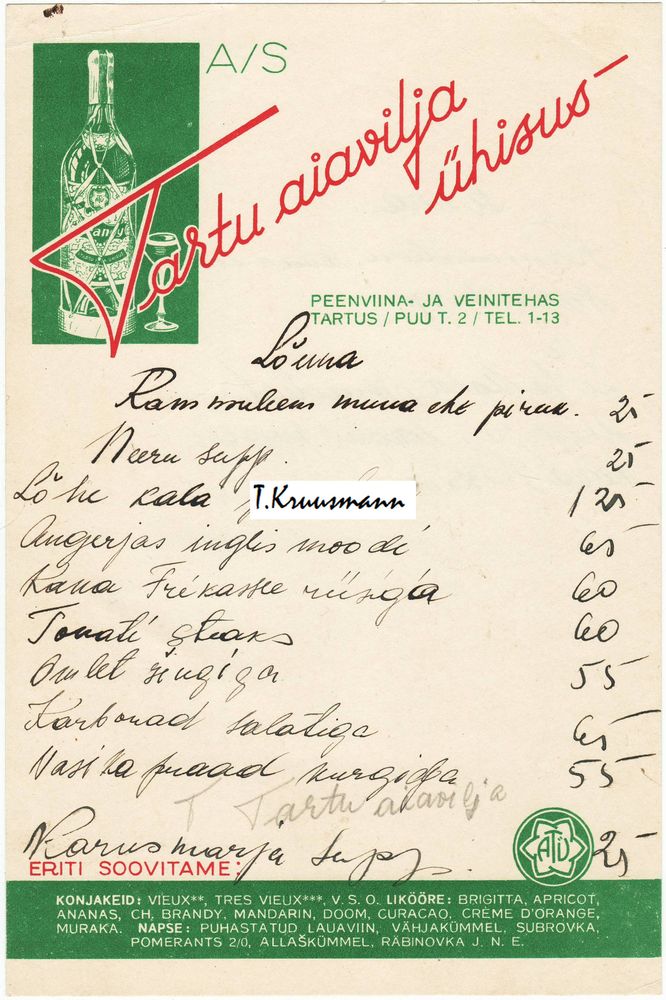 A/S
Tartu aiavilja
ühisus
andy
PEENVIINA- JA VEINITEHAS
TARTUS / PUU T. 2 / TEL. 1-13
Lõuna
muna ehk piruk. 25
Neeru supp. 25
Lõhe kala 125
T.Kruusmann
Angerjas inglis moodi 65
Kana Frikassee riisiga 60
Tomati steaks 60
Omlet singiga 55
Karbonad salatiga 65
Vasika praad kurgiga 55
T Tartu aiavilja
Karusmarja supp. 25
ERITI SOOVITAME:
ATÜ
KONJAKEID: VIEUX**, TRES VIEUX***, V. S. O. LIKÖÖRE: BRIGITTA, APRICOT,
ANANAS, CH. BRANDY, MANDARIN, DOOM, CURACAO, CRÈME D'ORANGE,
MURAKA. NAPSE: PUHASTATUD LAUAVIIN, VÄHJAKÜMMEL, SUBROVKA,
POMERANTS 2/0, ALLAŠKÜMMEL, RÄBINOVKA J. N. E.